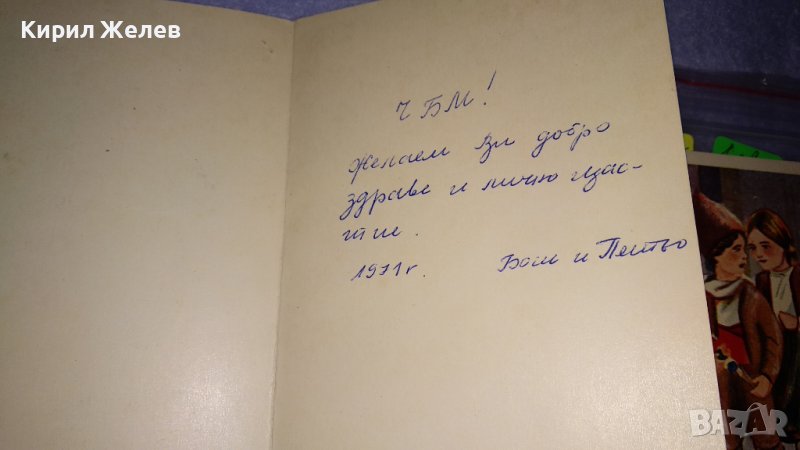 Кирил Желев
Ч БМ!
Желаем Ви добро
здраве и лично щас-
тие.
1971 г. и Пентьо
BAZAR